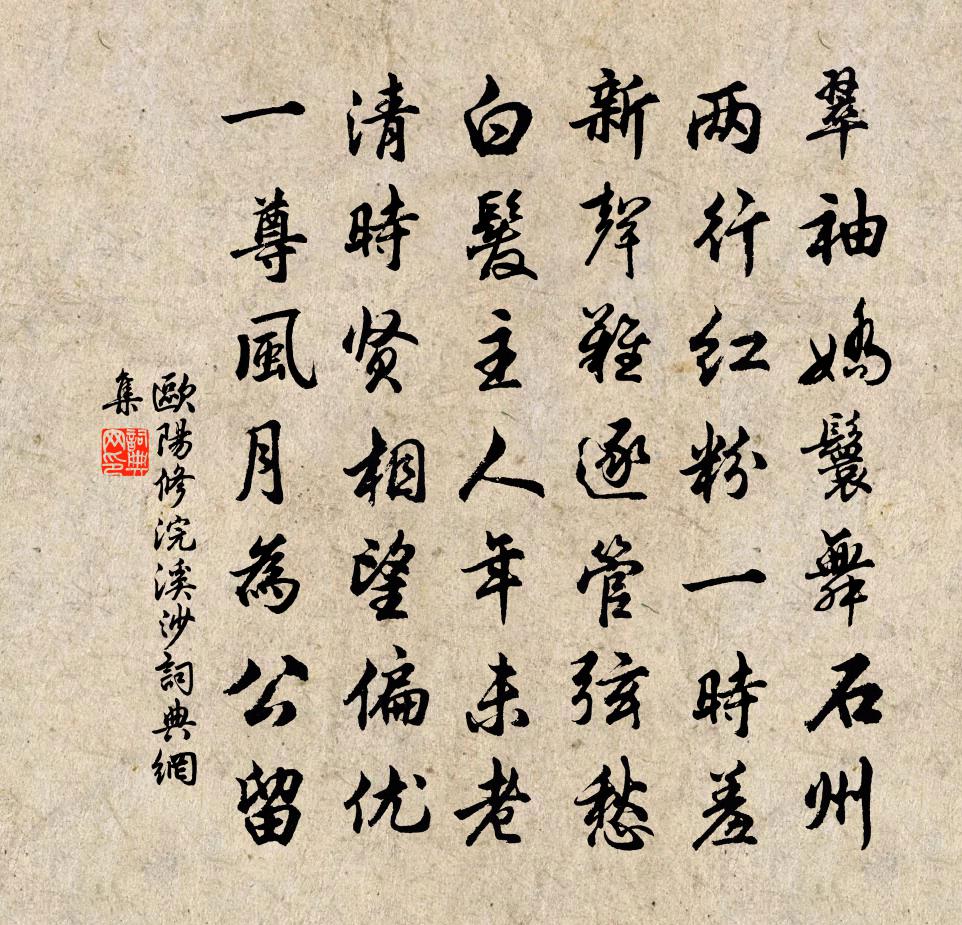 翠袖嬌鬟舞石州
两行红粉一時羞
新聲難逐管弦愁
白髮主人年未老
清時贤相望偏优
一尊風月為公留
歐陽修浣溪沙詞典網
集
詞典網印